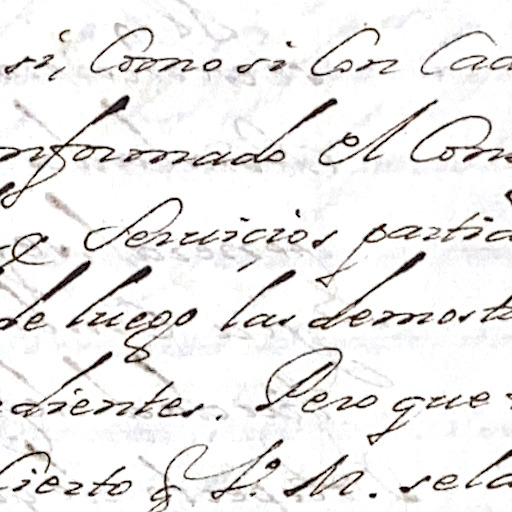 si, Como si Con Cad
nformado el Con
q̃ Seruiçios partic
de luego las demost
dientes. Pero que
Cierto q̃ S. M. sela